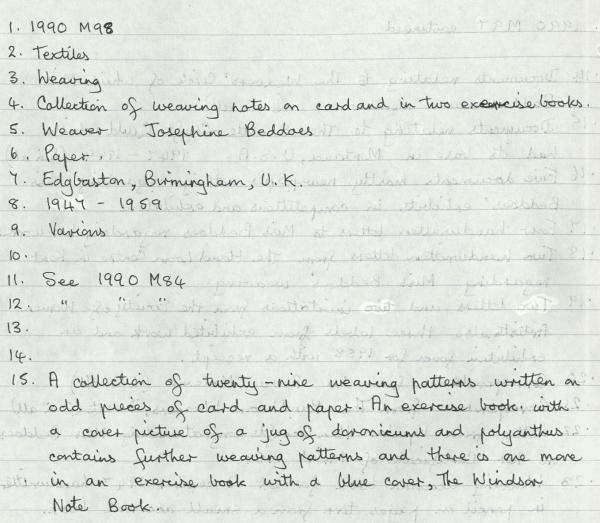 1. 1990 M98
2. Textiles
3. Weaving
4. Collection of weaving notes on card and in two exercise books.
5. Weaver Josephine Beddoes
6. Paper
7. Edgbaston, Birmingham, U.K.
8. 1947 - 1959
9. Various
10.
11. See 1990 M84
12. " " "
13.
14.
15. A collection of twenty-nine weaving patterns written on
odd pieces of card and paper. An exercise book, with
a cover picture of a jug of doronicums and polyanthus
contains further weaving patterns and there is one more
in an exercise book with a blue cover, The Windsor
Note Book.